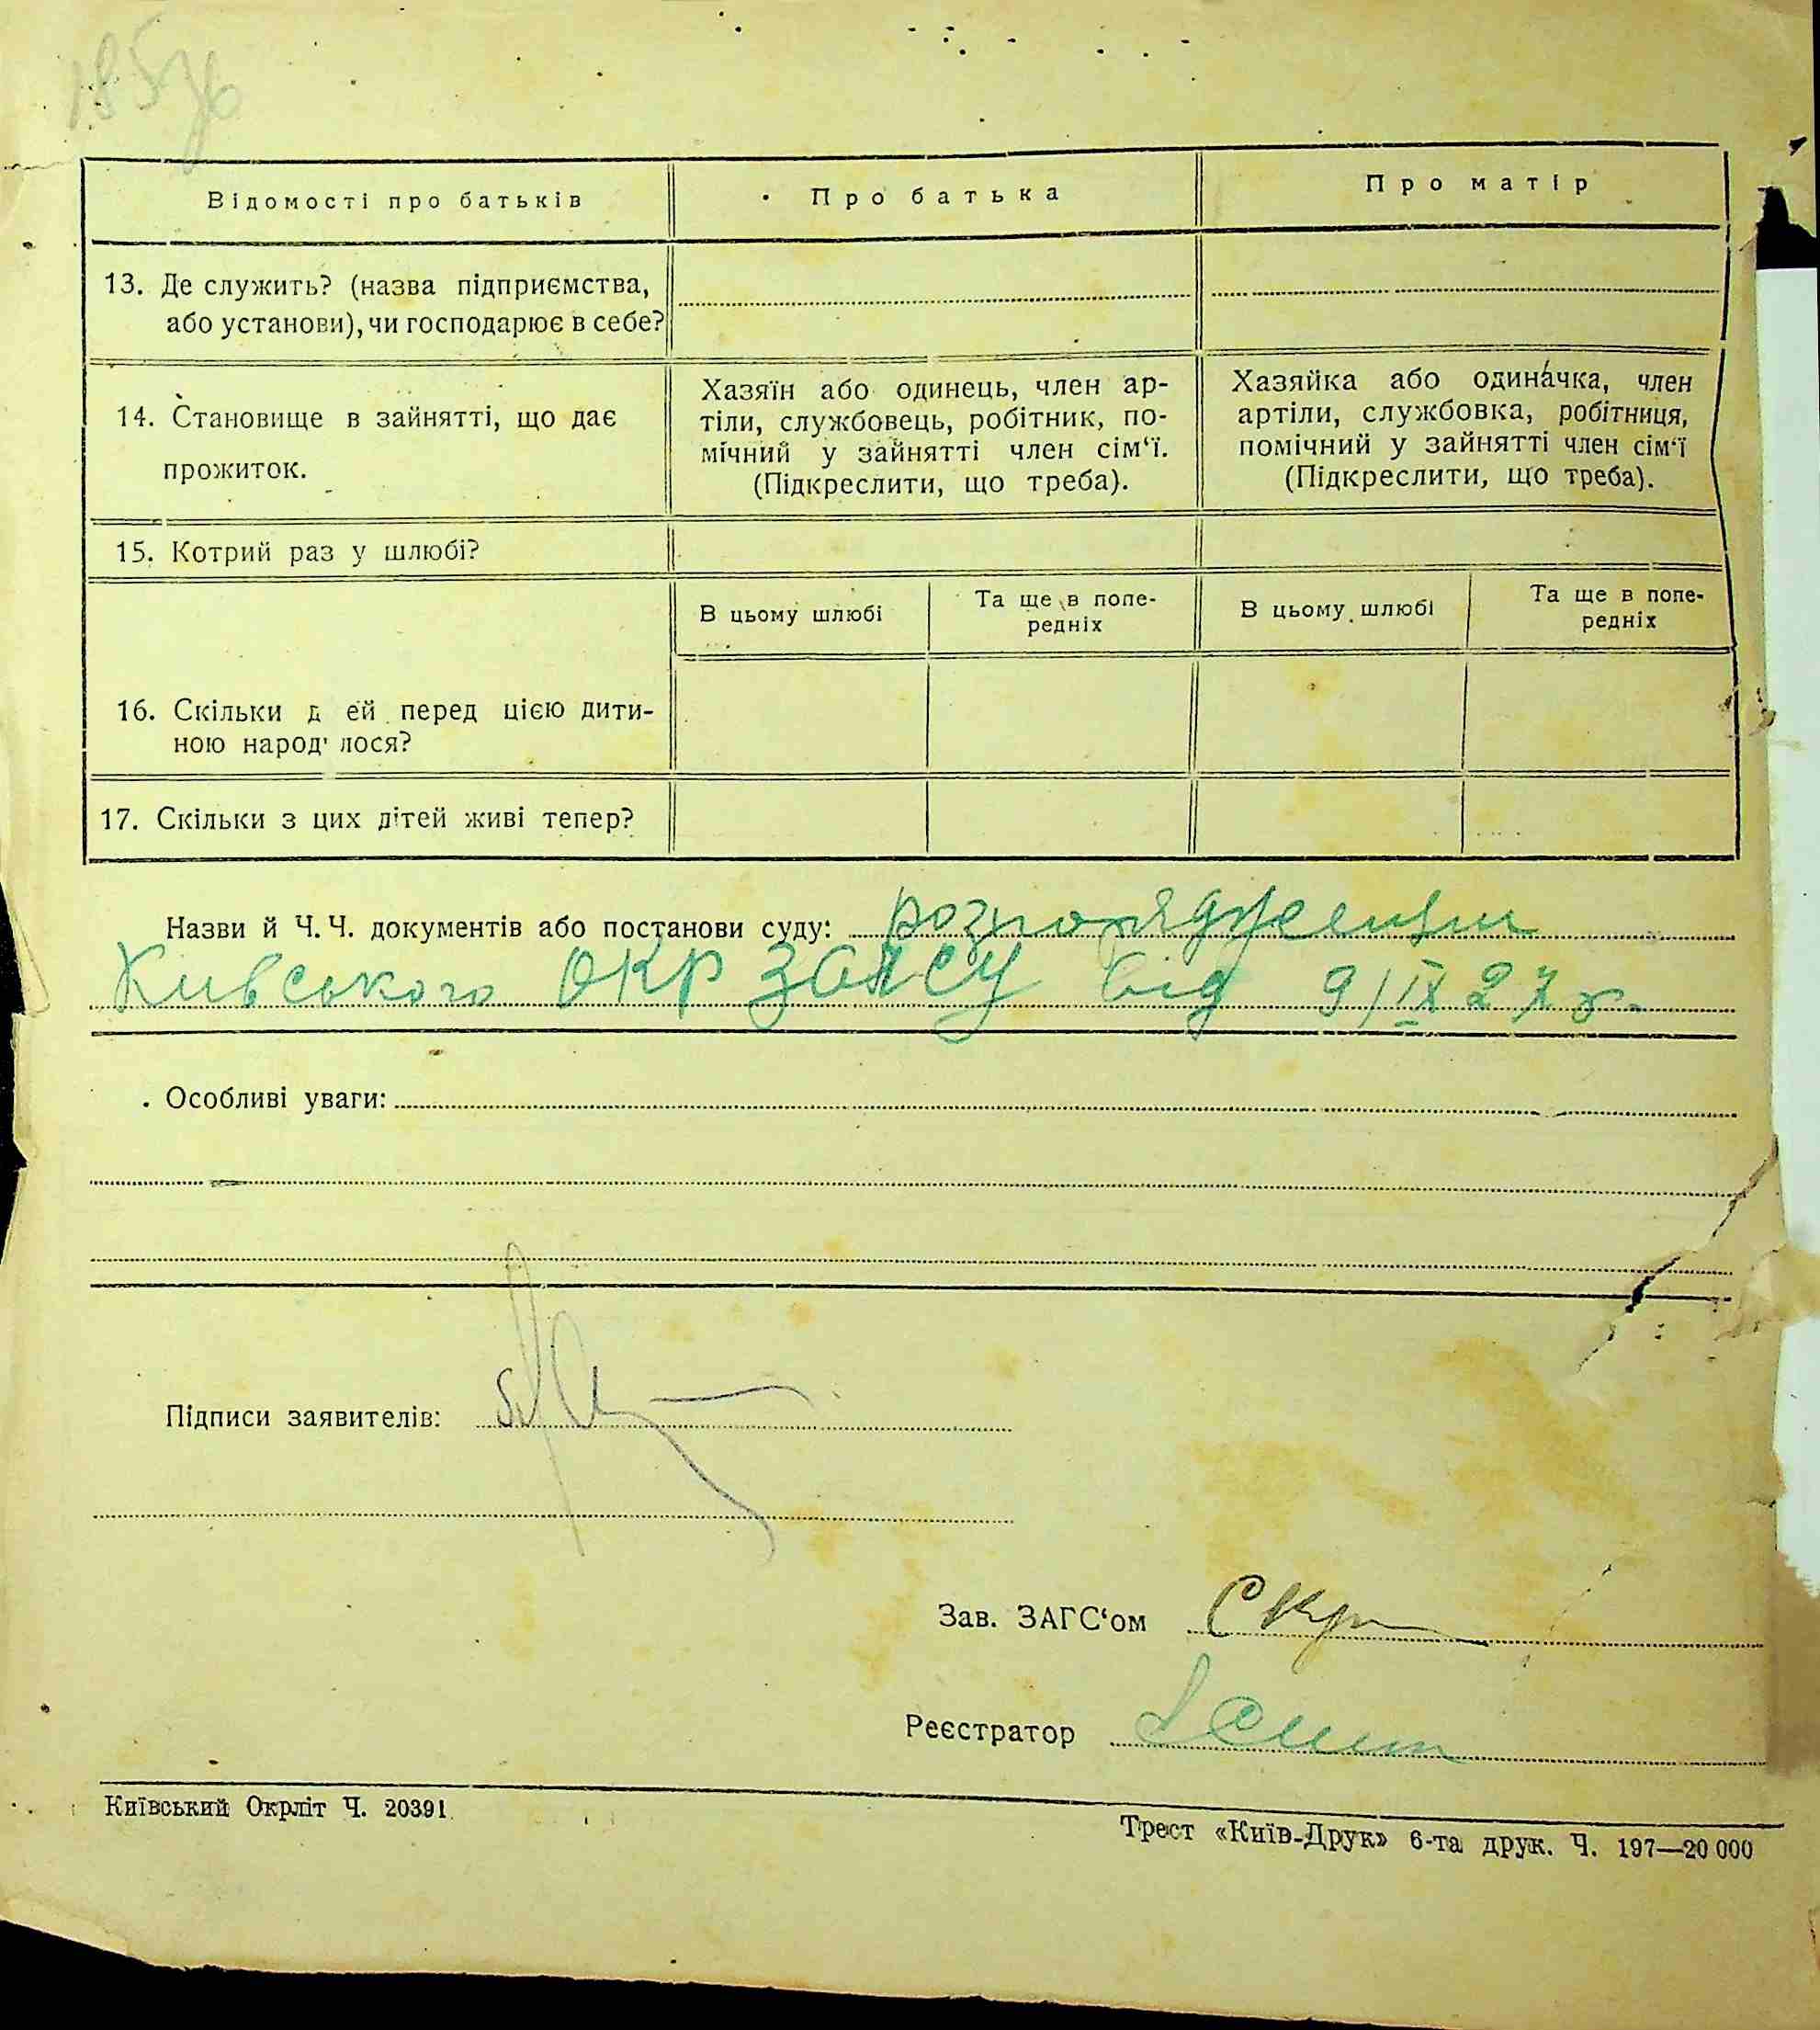 18576
Відомості про батьків
Про батька
Про матір
13. Де служить? (назва підприємства,
або установи), чи господарює в себе?
14. Становище в зайнятті, що дає
прожиток.
Хазяїн або одинець, член ар-
тіли, службовець, робітник, по-
мічний у зайнятті член сім‘ї.
(Підкреслити, що треба).
Хазяйка або одиначка, член
артіли, службовка, робітниця,
помічний у зайнятті член сім‘ї
(Підкреслити, що треба).
15. Котрий раз у шлюбі?
В цьому шлюбі
Та ще в попе-
редніх
В цьому шлюбі
Та ще в попе-
редніх
16. Скільки д ей перед цією дити-
ною народ лося?
17. Скільки з цих дітей живі тепер?
Назви й Ч. Ч. документів або постанови суду: розпорядженни
Київського ОКР ЗАГСУ від 9/IX 27 р.
Особливі уваги:
Підписи заявителів:
Зав. ЗАГС‘ом
Реєстратор
Київський Окрліт Ч. 20391
Трест «Київ-Друк» 6-та друк. Ч. 197—20 000